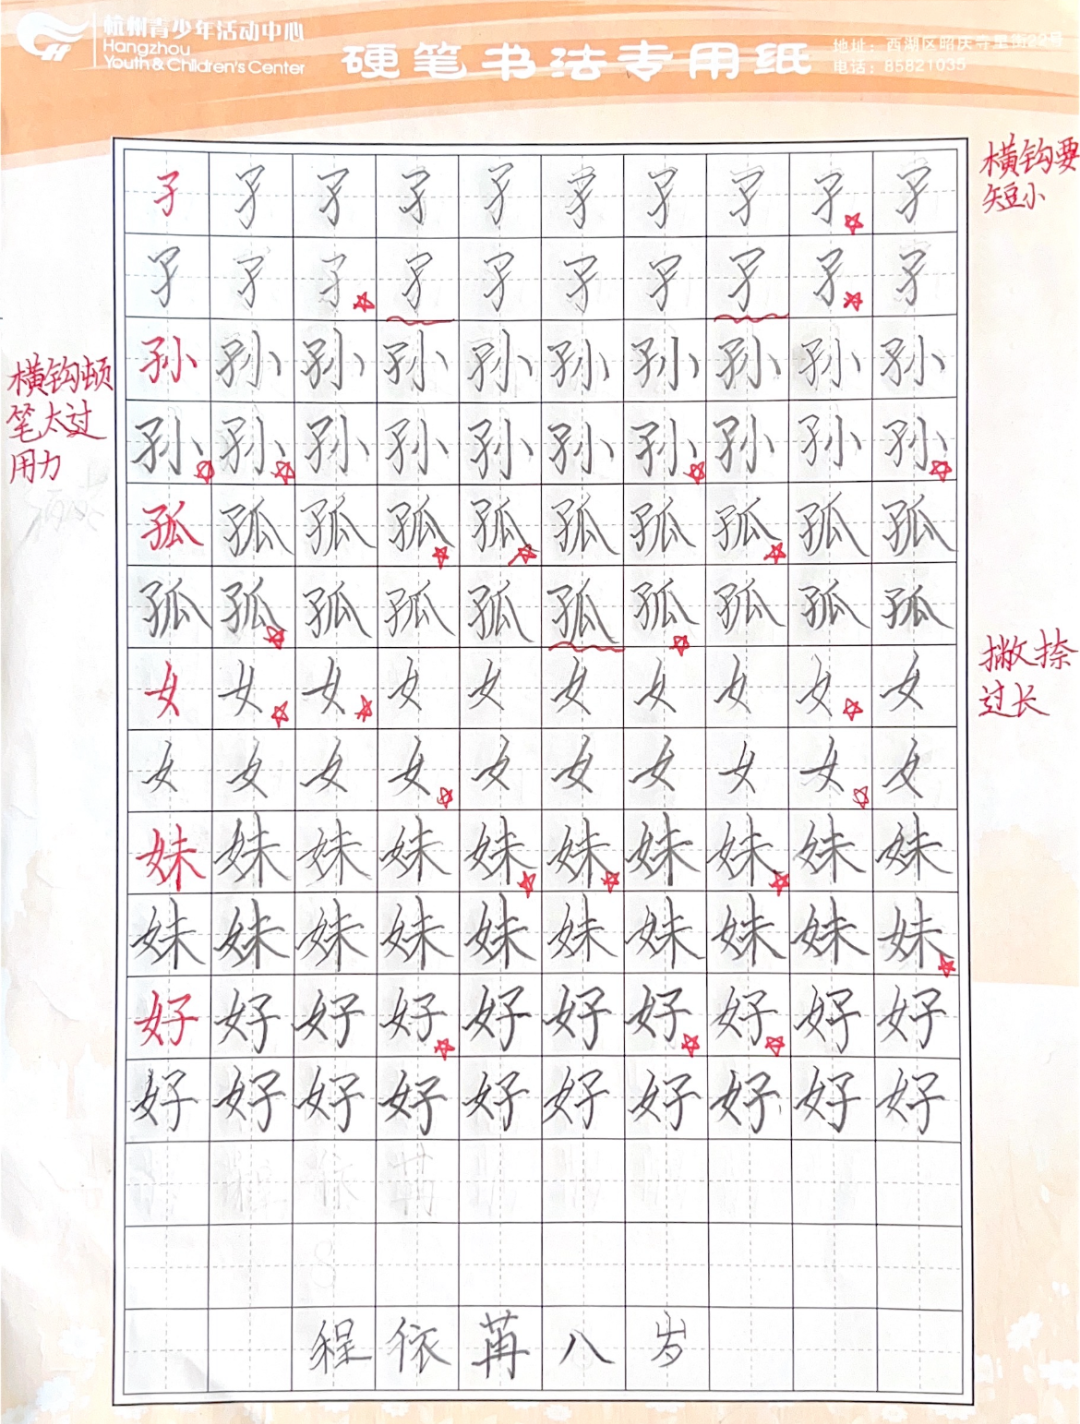 杭州青少年活动中心
Hangzhou
Youth & Children's Center
硬笔书法专用纸
地址：西湖区昭庆寺里街22号
电话：85821035
横钩要
短小
孑孑孑孑孑孑孑孑孑孑
孑孑孑孑孑孑孑孑孑孑
横钩顿
笔太过
用力
孙孙孙孙孙孙孙孙孙孙
孙孙孙孙孙孙孙孙孙孙
孤孤孤孤孤孤孤孤孤孤
孤孤孤孤孤孤孤孤孤孤
撇捺
过长
女女女女女女女女女女
女女女女女女女女女女
妹妹妹妹妹妹妹妹妹妹
妹妹妹妹妹妹妹妹妹妹
好好好好好好好好好好
好好好好好好好好好好
程依苒八岁